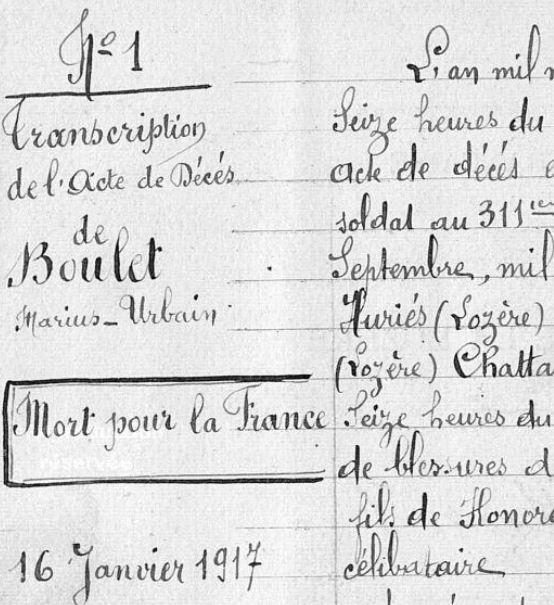 Nº 1
Transcription
de l'Acte de Décès
de
Boulet
Marius-Urbain
Mort pour la France
16 Janvier 1917
L'an mil n
Seize heures du
acte de décés e
soldat au 311ième
Septembre, mil
Huriés (Lozère)
(Lozère) Chatta
Seize heures du
de blessures d
fils de Honoré
célibataire